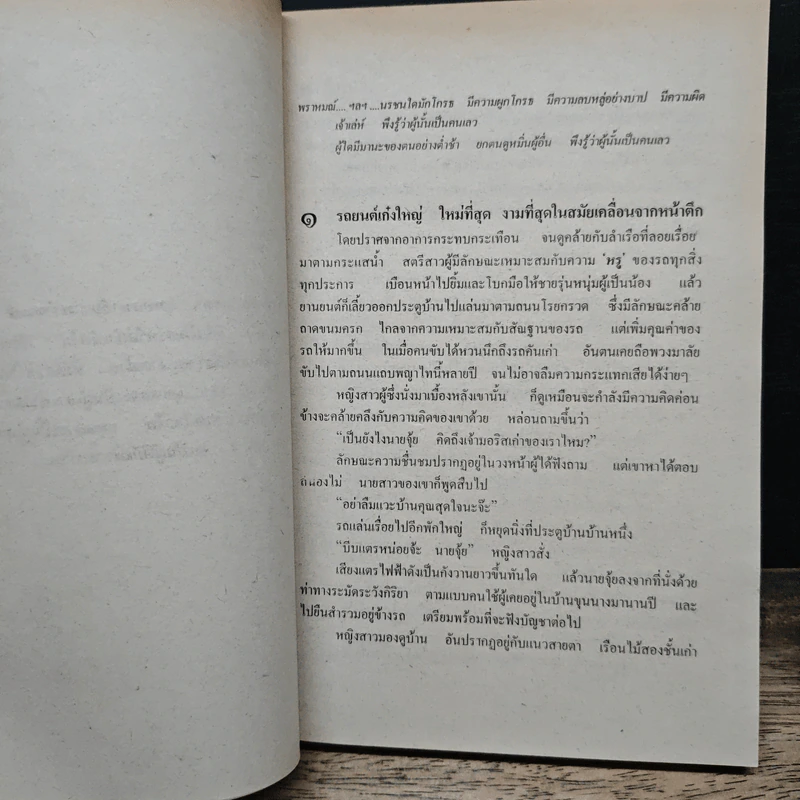 พราหมณ์.... ฯลฯ ....นรชนใดมักโกรธ มีความผูกโกรธ มีความลบหลู่อย่างบาป มีความผิด
เจ้าเล่ห์ พึงรู้ว่าผู้นั้นเป็นคนเลว
ผู้ใดมีมานะของตนอย่างต่ำช้า ยกตนดูหมิ่นผู้อื่น พึงรู้ว่าผู้นั้นเป็นคนเลว
๑ รถยนต์เก๋งใหญ่ ใหม่ที่สุด งามที่สุดในสมัยเคลื่อนจากหน้าตึก
โดยปราศจากอาการกระทบกระเทือน จนดูคล้ายกับลำเรือที่ลอยเรื่อย
มาตามกระแสน้ำ สตรีสาวผู้มีลักษณะเหมาะสมกับความ 'หรู' ของรถทุกสิ่ง
ทุกประการ เบือนหน้าไปยิ้มและโบกมือให้ชายรุ่นหนุ่มผู้เป็นน้อง แล้ว
ยานยนต์ก็เลี้ยวออกประตูบ้านไปแล่นมาตามถนนโรยกรวด ซึ่งมีลักษณะคล้าย
ถาดขนมครก ไกลจากความเหมาะสมกับสัณฐานของรถ แต่เพิ่มคุณค่าของ
รถให้มากขึ้น ในเมื่อคนขับได้หวนนึกถึงรถคันเก่า อันตนเคยถือพวงมาลัย
ขับไปตามถนนแถบพญาไทนี้หลายปี จนไม่อาจลืมความกระแทกเสียได้ง่ายๆ
หญิงสาวผู้ซึ่งนั่งมาเบื้องหลังเขานั้น ก็ดูเหมือนจะกำลังมีความคิดค่อน
ข้างจะคล้ายคลึงกับความคิดของเขาด้วย หล่อนถามขึ้นว่า
“เป็นยังไงนายจุ้ย คิดถึงเจ้ามอริสเก่าของเราไหม?”
ลักษณะความชื่นชมปรากฏอยู่ในวงหน้าผู้ได้ฟังถาม แต่เขาหาได้ตอบ
ถนองไม่ นายสาวของเขาก็พูดสืบไป
“อย่าลืมแวะบ้านคุณสุดใจนะจ๊ะ”
รถแล่นเรื่อยไปอีกพักใหญ่ ก็หยุดนิ่งที่ประตูบ้านบ้านหนึ่ง
“บีบแตรหน่อยจ้ะ นายจุ้ย” หญิงสาวสั่ง
เสียงแตรไฟฟ้าดังเป็นกังวานยาวขึ้นทันใด แล้วนายจุ้ยลงจากที่นั่งด้วย
ท่าทางระมัดระวังกิริยา ตามแบบคนใช้ผู้เคยอยู่ในบ้านขุนนางมานานปี และ
ไปยืนสำรวมอยู่ข้างรถ เตรียมพร้อมที่จะฟังบัญชาต่อไป
หญิงสาวมองดูบ้าน อันปรากฏอยู่กับแนวสายตา เรือนไม้สองชั้นเก่า